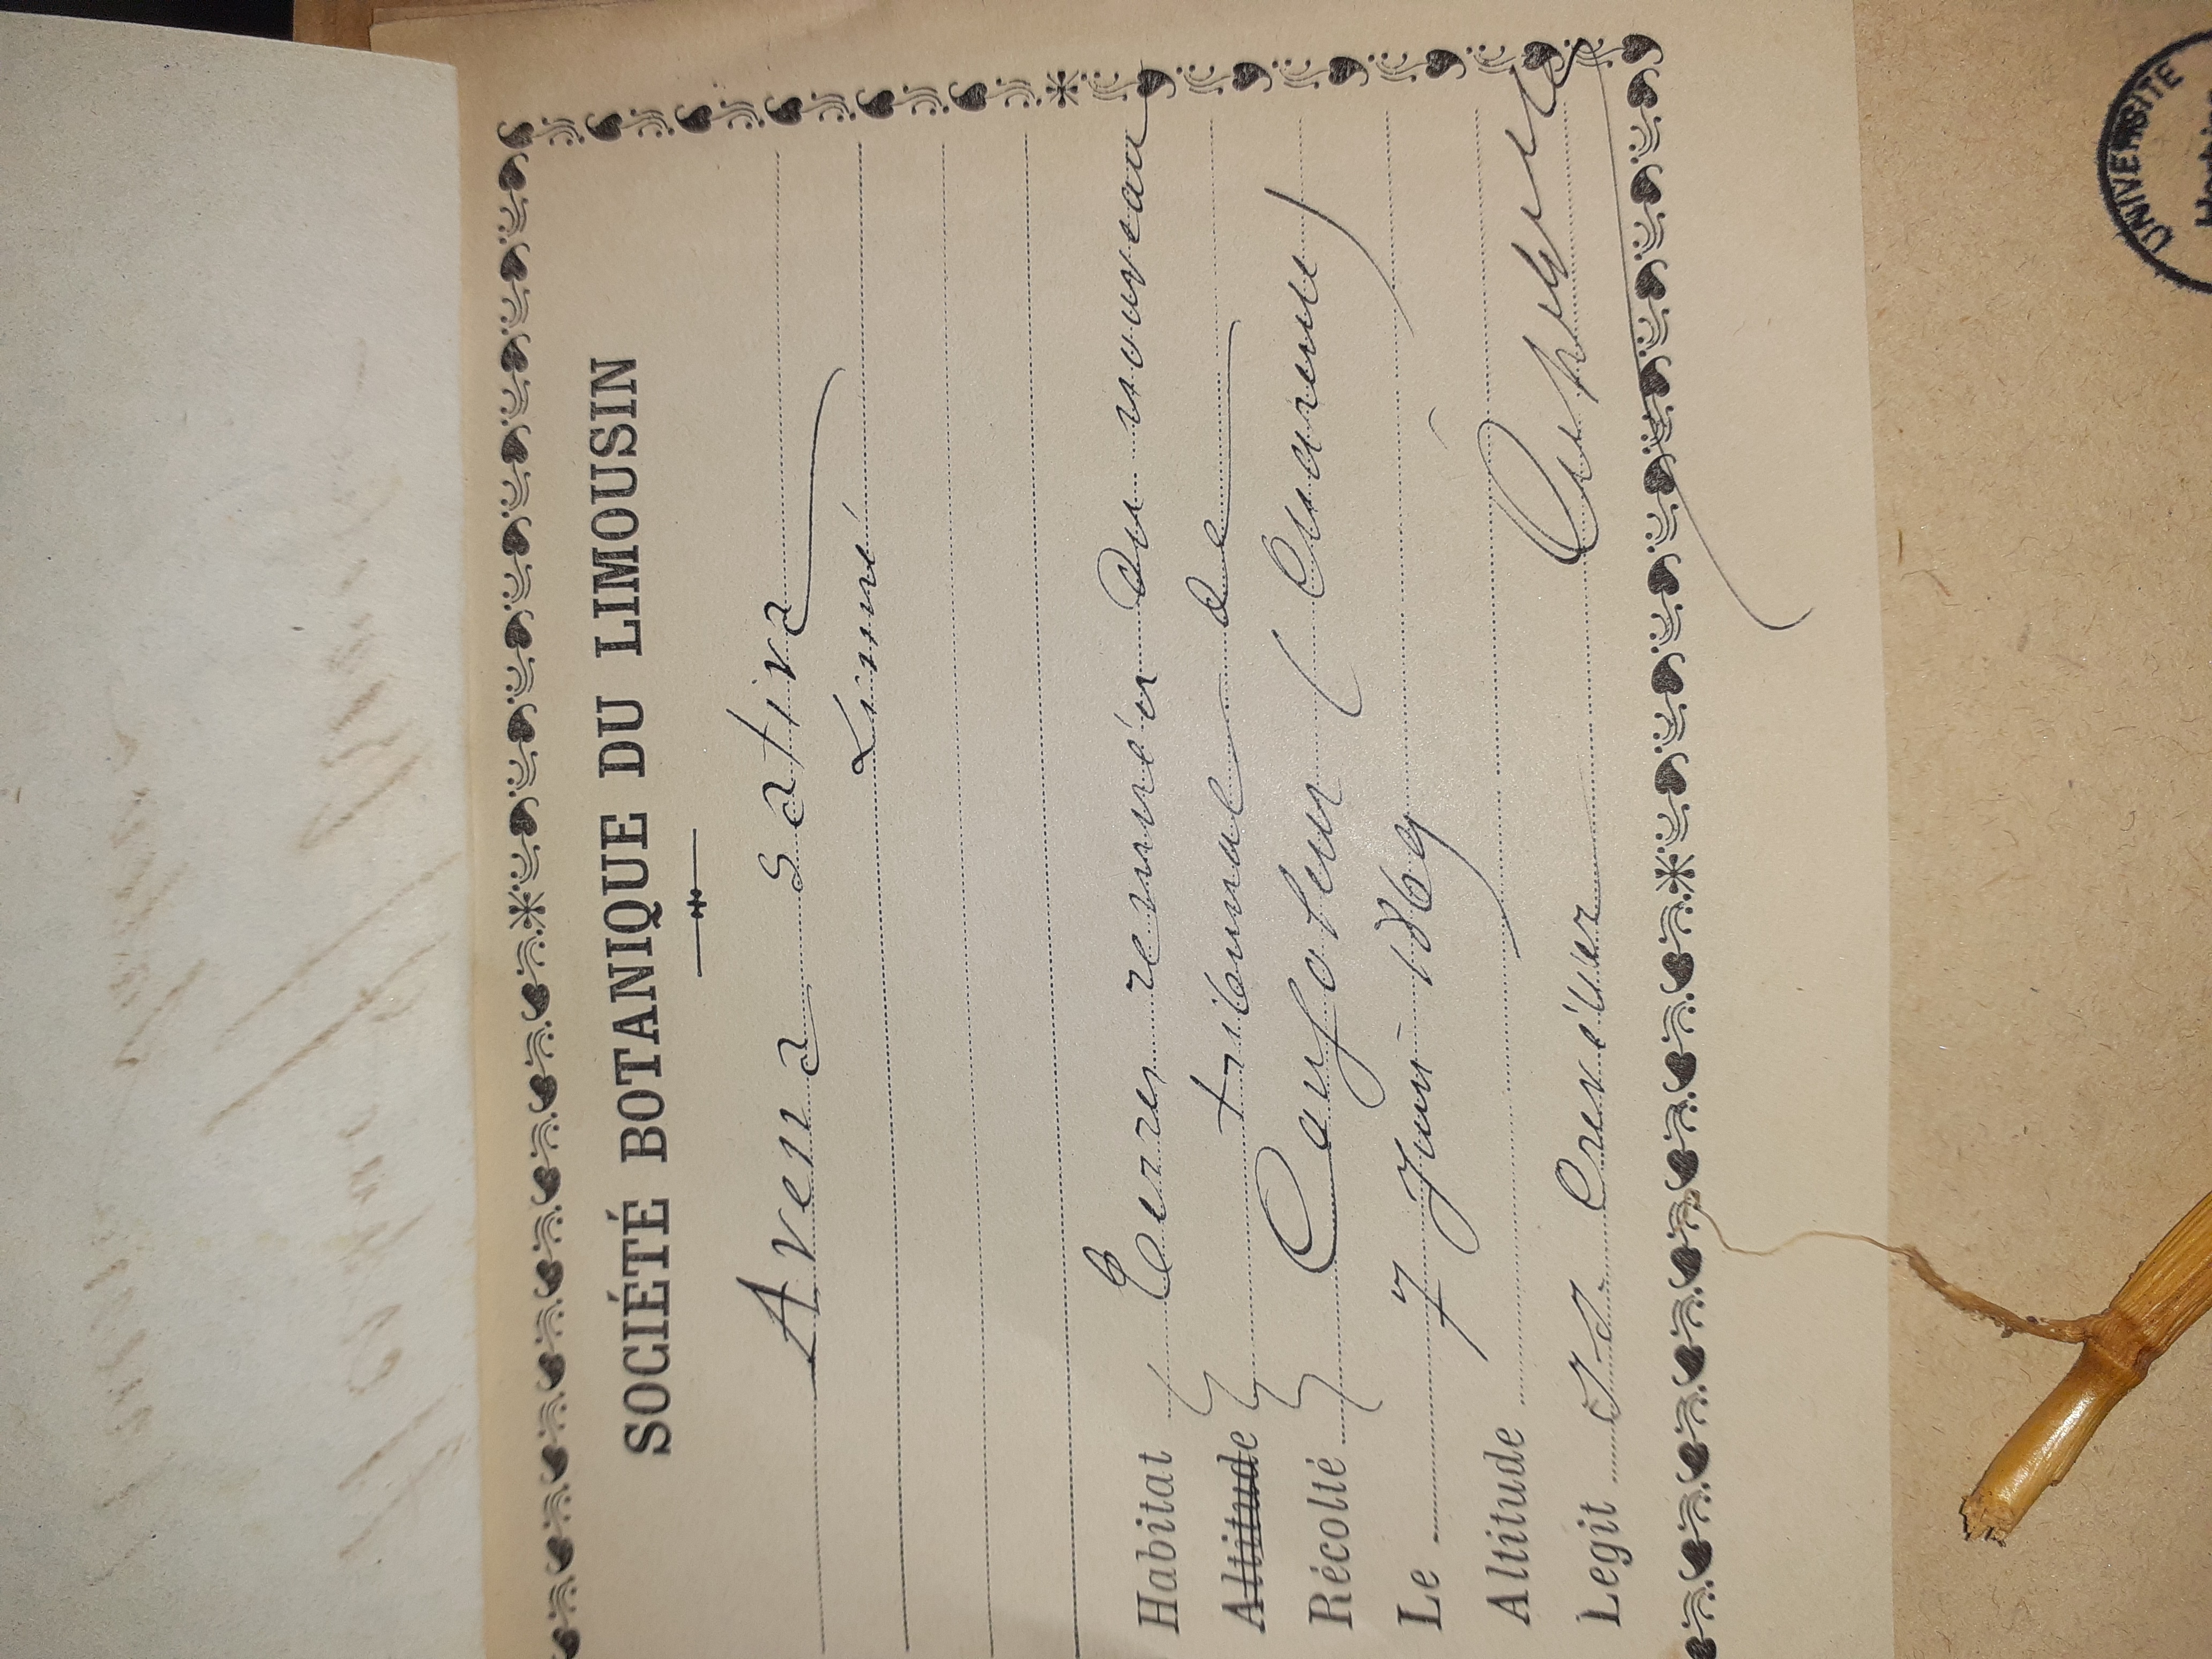 SOCIÉTÉ BOTANIQUE DU LIMOUSIN
Avena sativa
Linné
Habitat Terres remuées du nouveau
Altitude tribunal de
Récolté Confolens (Charente)
Le 7 Juin 1869
Altitude
Legit J. D. Crévelier
UNIVERSITE